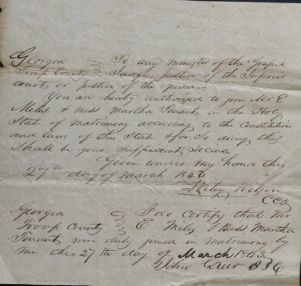 Georgia } To any minister of the Gospel
Troup County } Judge, Justice of the Inferior
court, or Justice of the peace
You are hereby authorized to join Mr E
Mels & Miss Martha in the Holy
State of matrimony according to the Constitution
and laws of this State & for So doing this
Shall be your Sufficient License
Given under my hand this
27th day of March 184
Wilson
CCO
Georgia } I do Certify that Mr
Troup County } E Mels & Miss Martha
were duly joined in matrimony by
me this 27th day of March 1843
John